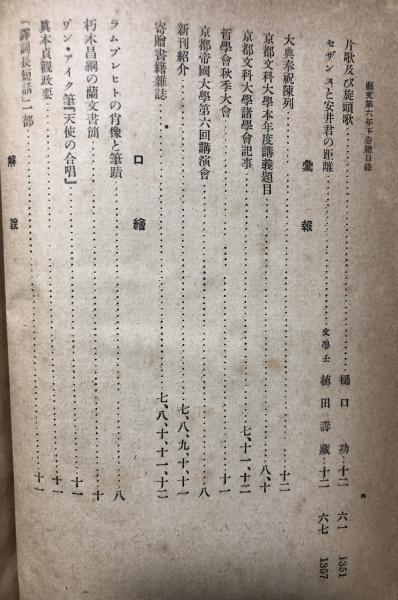 藝文第六年下卷總目錄
片歌及び旋頭歌……樋口功…十二 六一 1351
セザンヌと安井君の距離……文學士 植田壽藏…十二 六七 1357
彙報
大典奉祝陳列……十二
京都文科大學本年度講義題目……八、十
京都文科大學諸學會記事……七、十一、十二
哲學會秋季大會……十一
京都帝國大學第六回講演會……八
新刊紹介……七、八、九、十、十一
寄贈書籍雜誌……七、八、十、十一、十二
口繪
ラムプレヒトの肖像と筆蹟……八
朽木昌綱の蘭文書簡……十
ワン・アイク筆『天使の合唱』……十一
眞本貞觀政要……十一
『譯詞長短話』一部……十一
解說